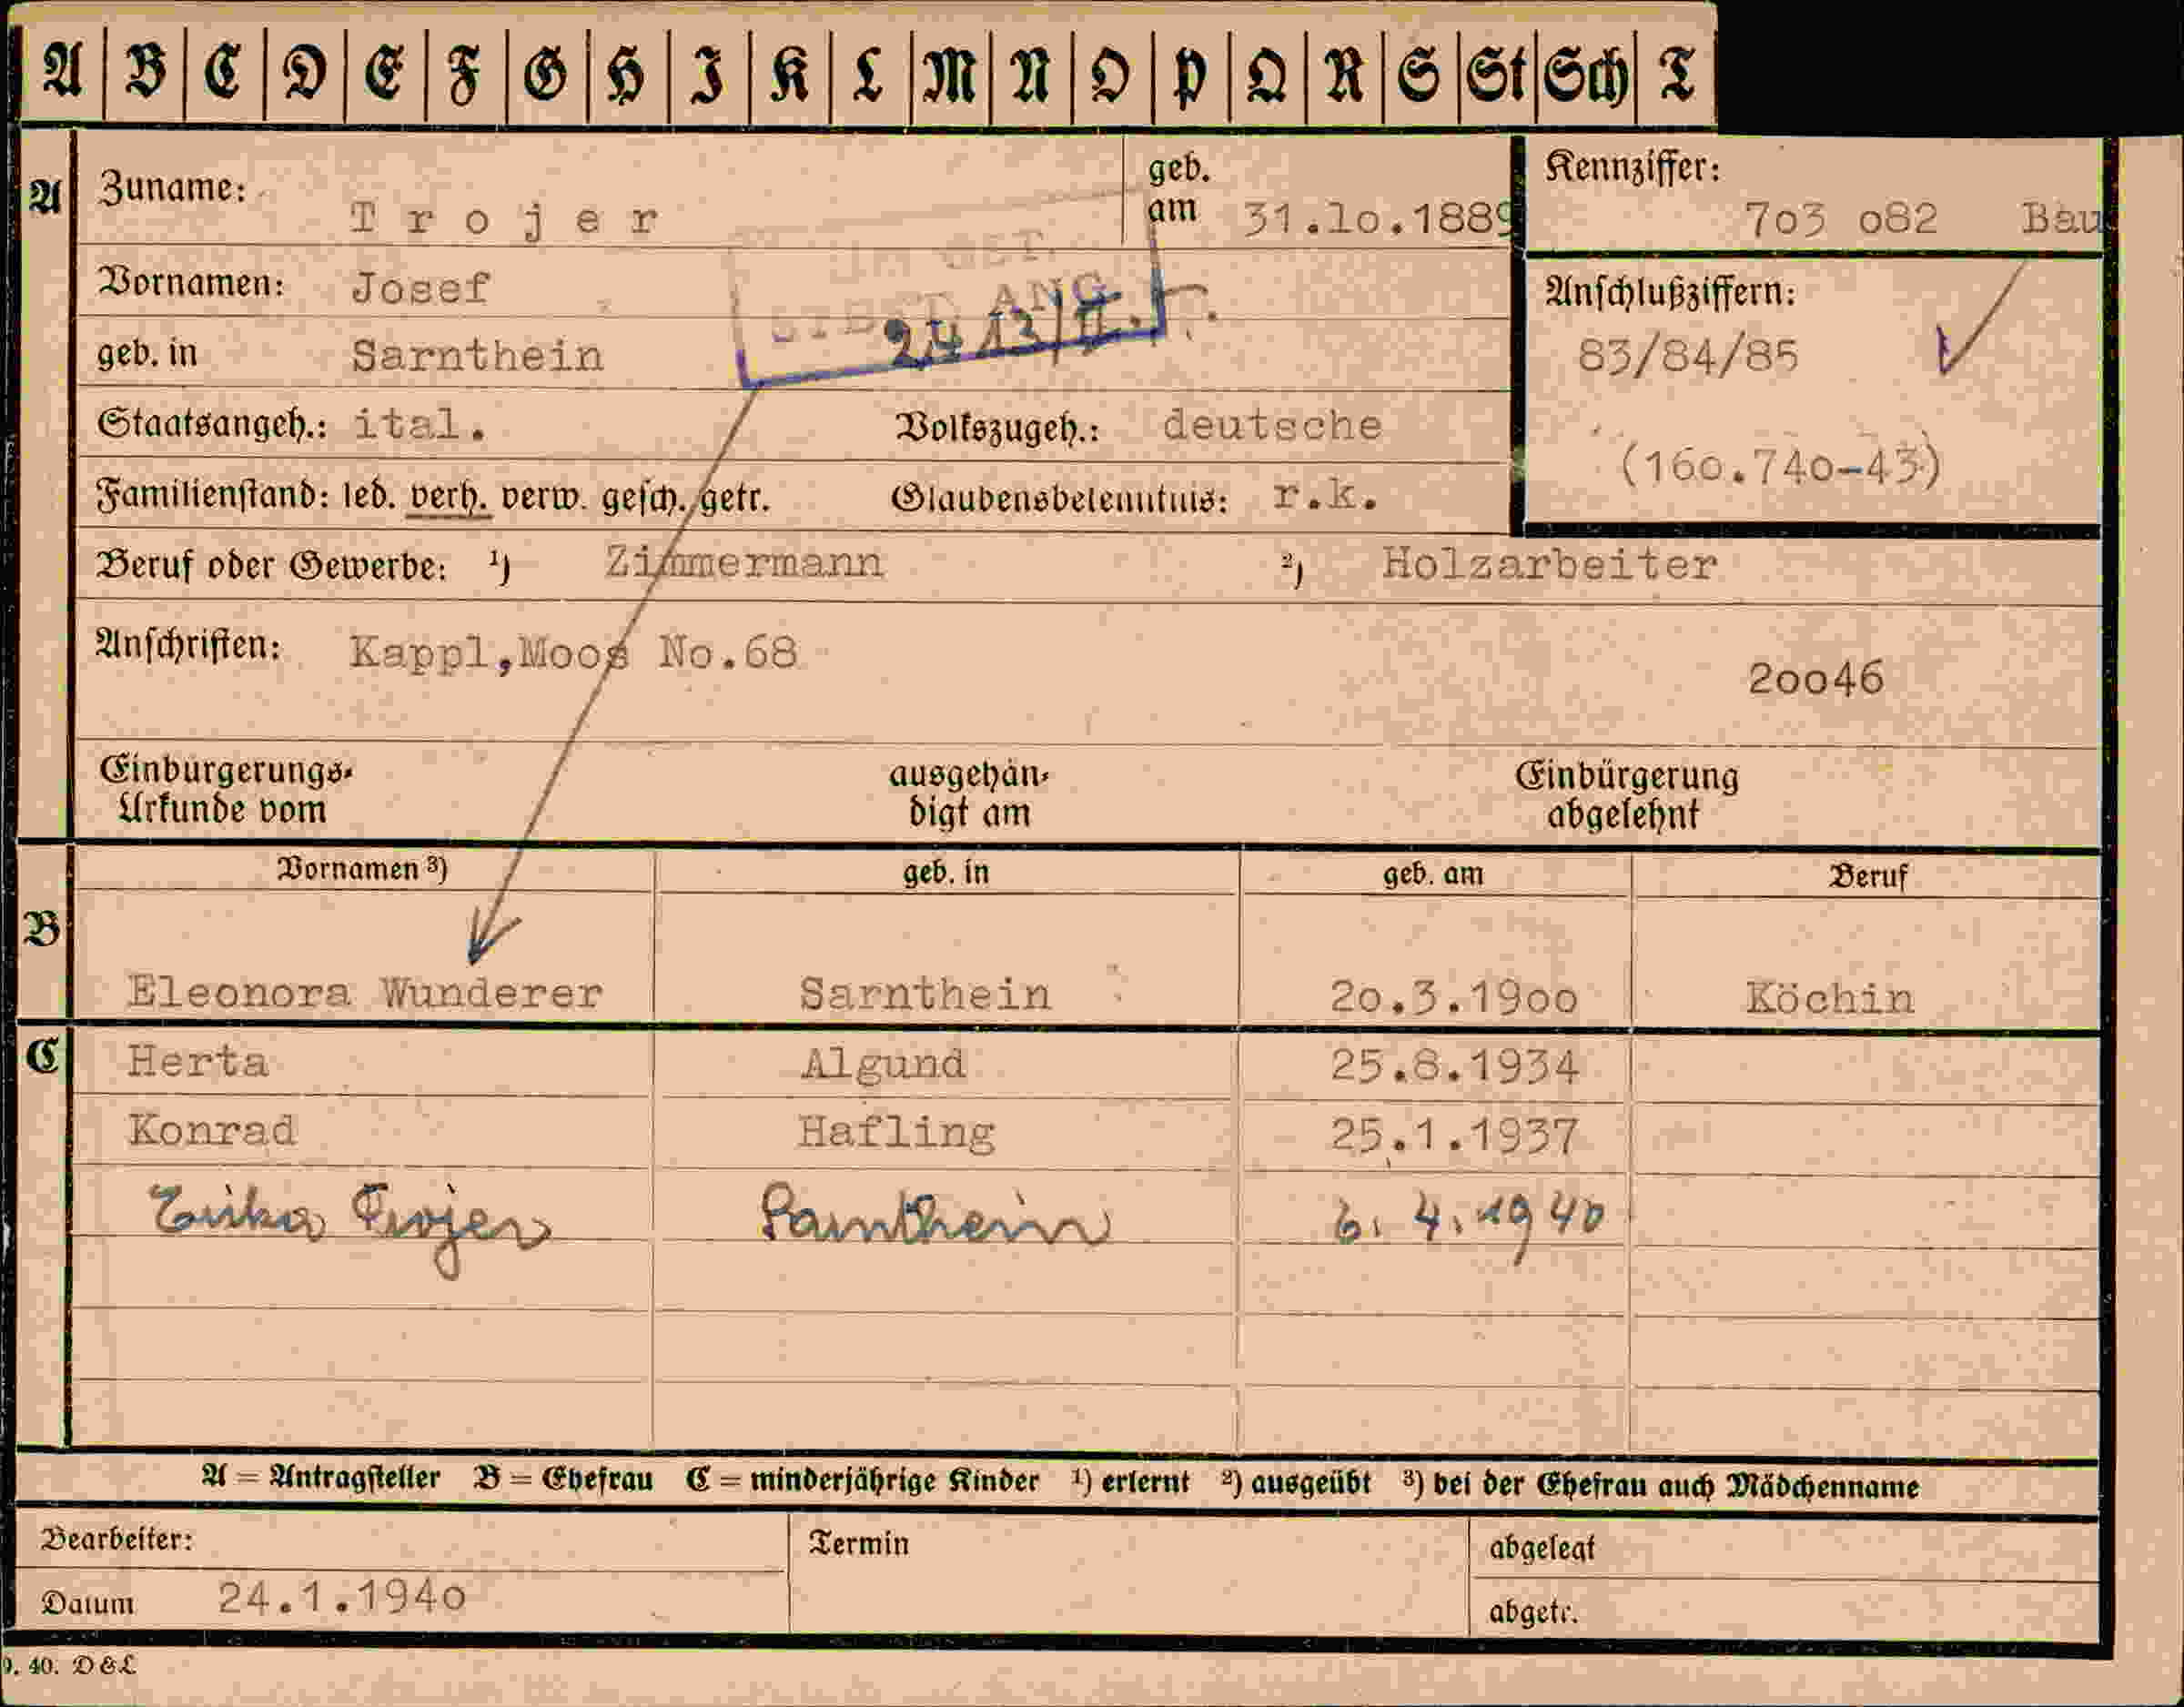 A B C D E F G H I K L M N O P Q R S St Sch T
A Zuname: Trojer geb. am 31.10.1889 Kennziffer: 703 082 Bau
Vornamen: Josef Anschlußziffern:
83/84/85
geb. in Sarnthein
Staatsangeh.: ital. Volkszugeh.: deutsche
(160.740-43)
Familienstand: led. verh. verw. gesch. getr. Glaubensbekenntnis: r.k.
Beruf oder Gewerbe: ¹) Zimmermann ²) Holzarbeiter
Anschriften: Kappl,Moos No.68
20046
Einbürgerungs-Urkunde vom ausgehän-digt am Einbürgerung abgelehnt
B Vornamen ³) geb. in geb. am Beruf
Eleonora Wunderer Sarnthein 20.3.1900 Köchin
C Herta Algund 25.8.1934
Konrad Hafling 25.1.1937
Erika Trojer Sarnthein 6. 4. 1940
A = Antragsteller B = Ehefrau C = minderjährige Kinder ¹) erlernt ²) ausgeübt ³) bei der Ehefrau auch Mädchenname
Bearbeiter: Termin abgelegt
Datum 24.1.1940 abgetr.
9. 40. D & L